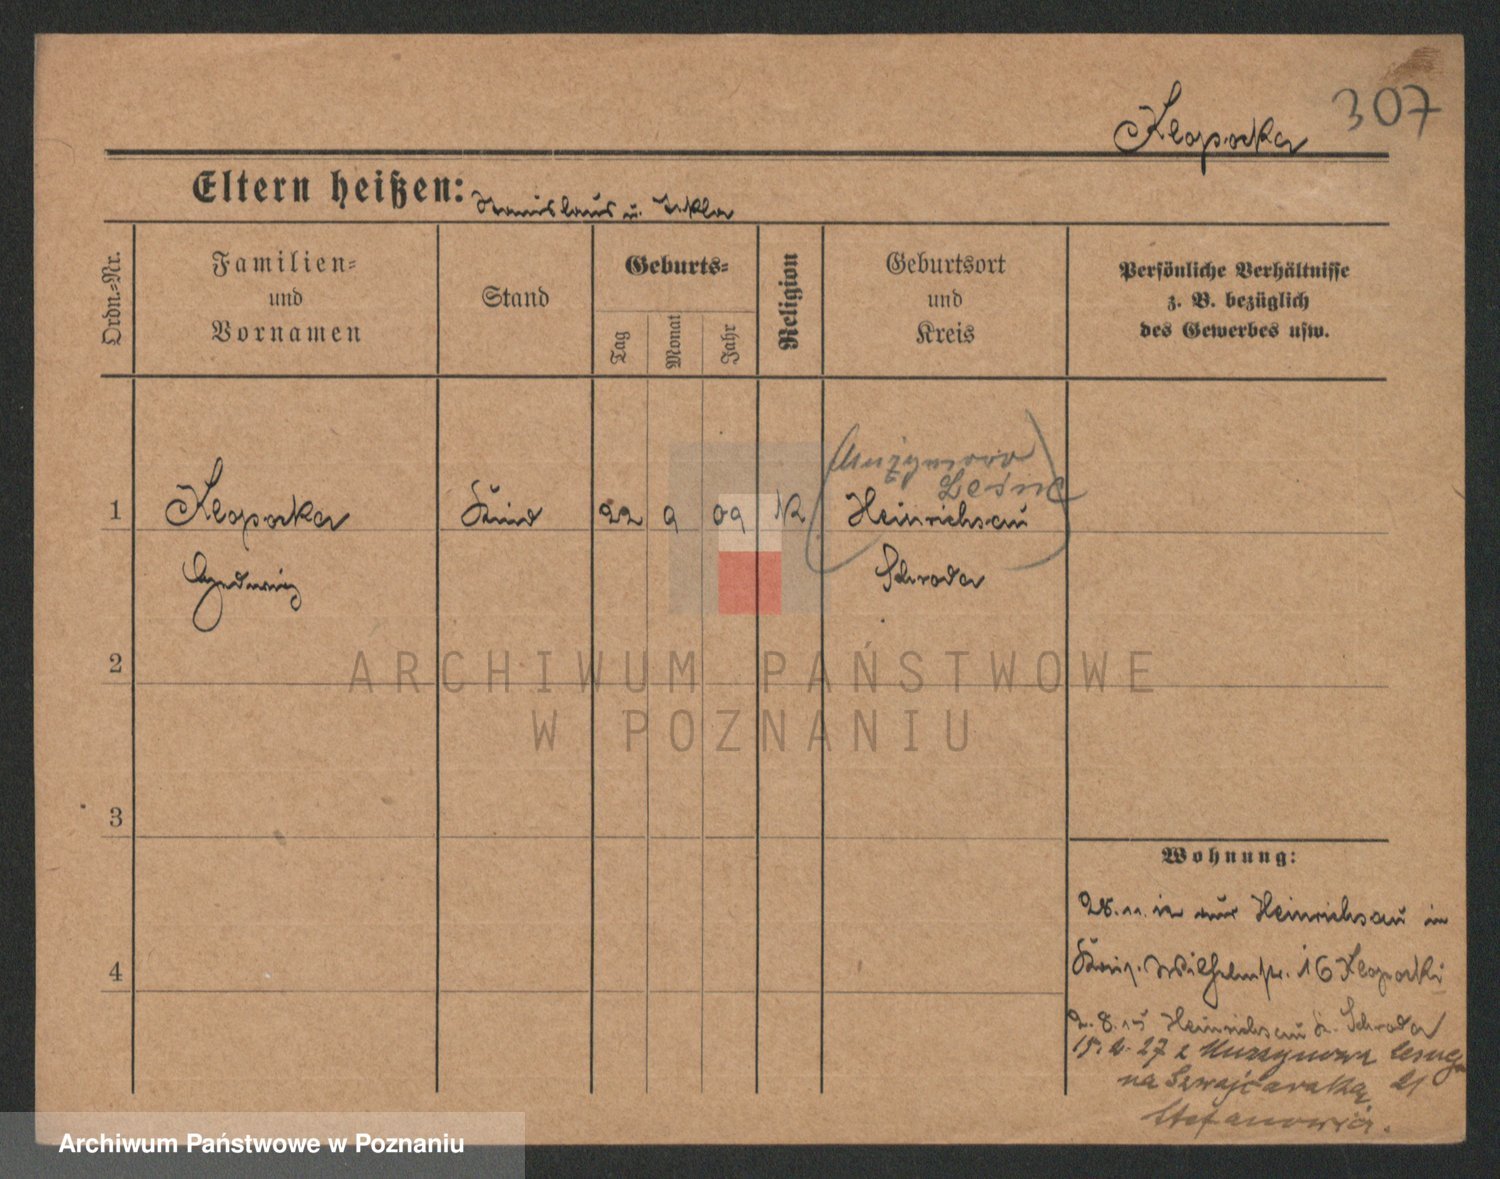 307
Kloporka
Eltern heißen: Stanislaus u. Tekla
Ordn.=Nr.
Familien=
und
Vornamen
Stand
Geburts=
Tag
Monat
Jahr
Religion
Geburtsort
und
Kreis
Persönliche Verhältnisse
z. B. bezüglich
des Gewerbes usw.
Muzynowo
Leśne
1 Kind 22 9 09 K Heinrichsau
Hedwig Schroda
2
3
4
ARCHIWUM PAŃSTWOWE
W POZNANIU
Wohnung:
28.11.12 aus Heinrichsau in
Wilhelmstr. 16
2.8.15 Heinrichsau K. Schroda
15.2.27 z
na Szwajcarską 21
Stefanowicz.
Archiwum Państwowe w Poznaniu